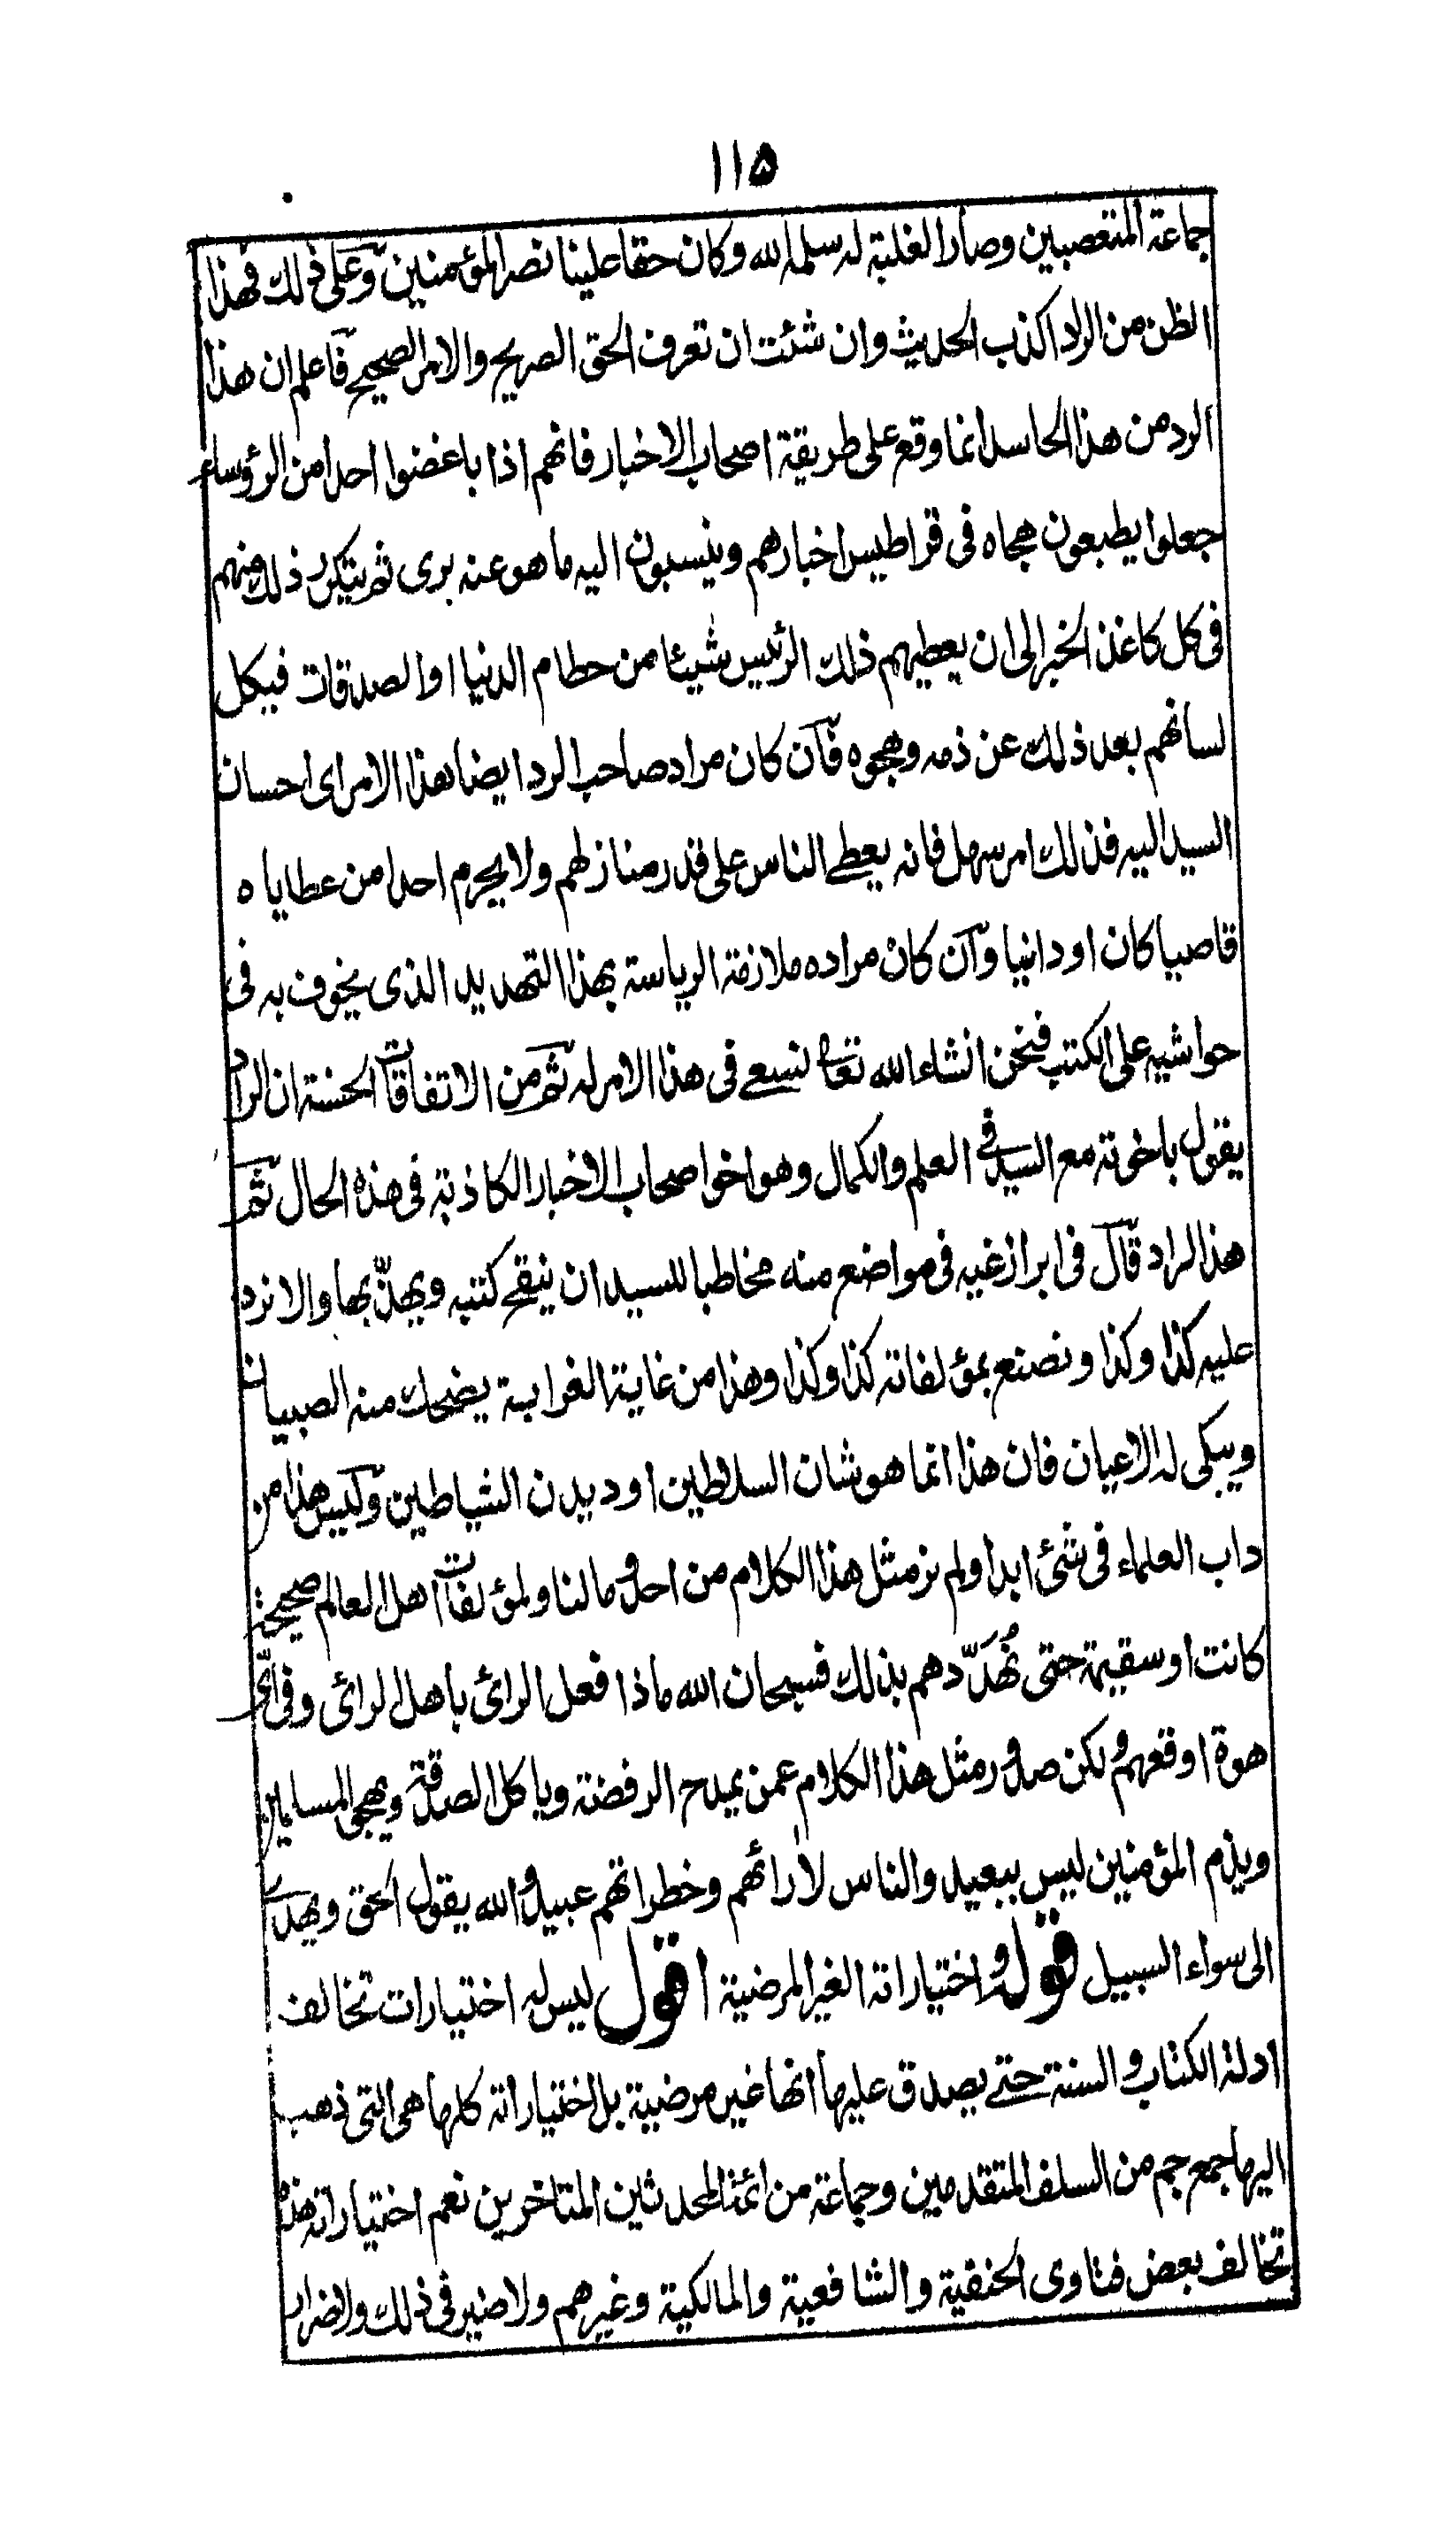 ١١٥
جماعة المتعصبين وصار الغلبة له سلمه الله وكان حقا علينا نصر المؤمنين وعلى ذلك فهذا
الظن من الراد اكذب الحديث وان شئت ان تعرف الحق الصريح والامر الصحيح فاعلم ان هذا
الرد من هذا الحاسد انما وقع على طريقة اصحاب الاخبار فانهم اذا باغضوا احدا من الرؤساء
جعلوا يطبعون هجاه فى قراطيس اخبارهم وينسبون اليه ما هو عنه برى ثم يتكرر ذلك منهم
فى كل كاغذ الخبر الى ان يعطيهم ذلك الرئيس شيئا من حطام الدنيا او الصدقات فيكل
لسانهم بعد ذلك عن ذمه وهجوه فان كان مراد صاحب الرد ايضا هذا الامر اى احسان
السيد اليه فذلك امر سهل فانه يعطے الناس على قدر منازلهم ولا يحرم احدا من عطاياه
قاصيا كان او دانيا وان كان مراده ملازمة الرياسة بهذا التهديد الذى يخوف به فى
حواشيه على الكتب فنحن انشاء الله تعالى نسعے فى هذا الامر له ثم من الاتفاقات الحسنة ان الراد
يقول باخوته مع السيد فى العلم والكمال وهو اخو اصحاب الاخبار الكاذبة فى هذه الحال ثم
هذا الراد قال فى ابراز غيه فى مواضع منه مخاطبا للسيد ان ينقح كتبه ويهذّبها والا نرد
عليه كذا وكذا ونصنع بمؤلفاته كذا وكذا وهذا من غاية الغرابة يضحك منه الصبيان
ويبكى له الاعيان فان هذا انما هو شان السلاطين او ديدن الشياطين وليس هذا من
داب العلماء فى شئ ابدا ولم نر مثل هذا الكلام من احد وما لنا ولمؤلفات اهل العالم صحيحة
كانت او سقيمة حتى نُهَدّدهم بذلك فسبحان الله ماذا فعل الرائ باهل الرائ وفى اىّ
هوة اوقعهم ولكن صدور مثل هذا الكلام عمن يمدح الرفضة وياكل الصدقة ويهجى المسلمين
ويذم المؤمنين ليس ببعيد والناس لأرائهم وخطراتهم عبيد والله يقول الحق ويهدى
الى سواء السبيل قوله واختياراته الغير المرضية اقول ليس له اختيارات تخالف
ادلة الكتاب والسنة حتے يصدق عليها انها غير مرضية بل اختياراته كلها هى التى ذهب
اليها جمع جم من السلف المتقدمين وجماعة من ائمة المحدثين المتاخرين نعم اختياراته هذه
تخالف بعض فتاوى الحنفية والشافعية والمالكية وغيرهم ولا ضير فى ذلك ولا ضرار